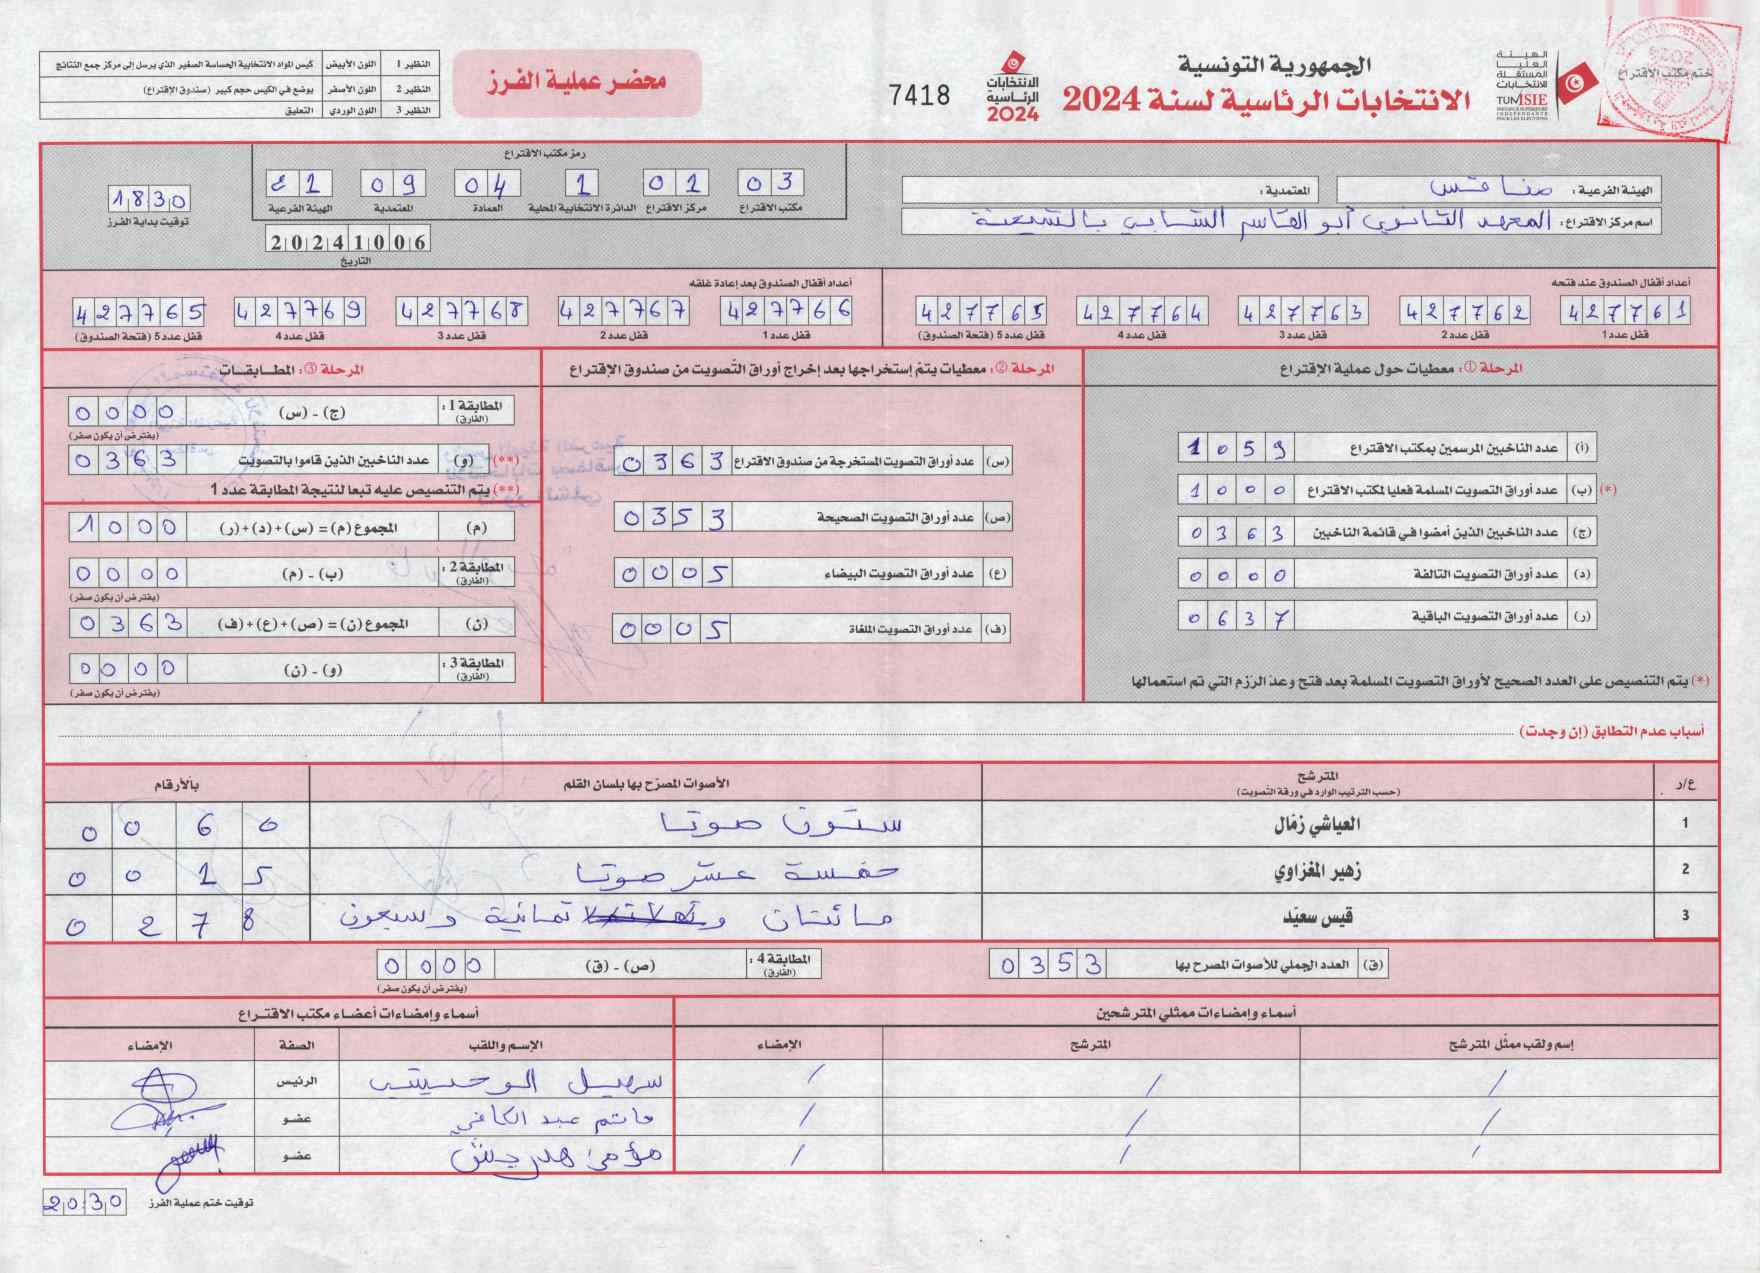 الجمهورية التونسية
الانتخابات الرئاسية لسنة 2024
الهيئة العليا المستقلة للانتخابات
TUNISIE
INSTANCE SUPÉRIEURE INDÉPENDANTE POUR LES ÉLECTIONS
ختم مكتب الاقتراع
الانتخابات الرئاسية 2024
7418
محضر عملية الفرز
النظير 1 اللون الأبيض كيس المواد الانتخابية الحساسة الصغير الذي يرسل إلى مركز جمع النتائج
النظير 2 اللون الأصفر يوضع في الكيس حجم كبير (صندوق الإقتراع)
النظير 3 اللون الوردي التعليق
الهيئة الفرعية : صفاقس
المعتمدية :
اسم مركز الاقتراع : المعهد الثانوي أبو القاسم الشابي بالشيحية
رمز مكتب الاقتراع
03 مكتب الاقتراع
01 مركز الاقتراع
1 الدائرة الانتخابية المحلية
04 العمادة
09 المعتمدية
21 الهيئة الفرعية
20241006
التاريخ
1830
توقيت بداية الفرز
أعداد أقفال الصندوق عند فتحه
427761 427762 427763 427764 427765
قفل عدد 1 قفل عدد 2 قفل عدد 3 قفل عدد 4 قفل عدد 5 (فتحة الصندوق)
أعداد أقفال الصندوق بعد إعادة غلقه
427766 427767 427768 427769 427765
قفل عدد 1 قفل عدد 2 قفل عدد 3 قفل عدد 4 قفل عدد 5 (فتحة الصندوق)
المرحلة ① : معطيات حول عملية الإقتراع
(أ) عدد الناخبين المرسمين بمكتب الاقتراع 1059
(*) (ب) عدد أوراق التصويت المسلمة فعليا لمكتب الاقتراع 1000
(ج) عدد الناخبين الذين أمضوا في قائمة الناخبين 0363
(د) عدد أوراق التصويت التالفة 0000
(ر) عدد أوراق التصويت الباقية 0637
(*) يتم التنصيص على العدد الصحيح لأوراق التصويت المسلمة بعد فتح وعدّ الرزم التي تم استعمالها
المرحلة ② : معطيات يتمّ إستخراجها بعد إخراج أوراق التّصويت من صندوق الإقتراع
(س) عدد أوراق التصويت المستخرجة من صندوق الاقتراع 0363
(ص) عدد أوراق التصويت الصحيحة 0353
(ع) عدد أوراق التصويت البيضاء 0005
(ف) عدد أوراق التصويت الملغاة 0005
المرحلة ③ : المطابقات
المطابقة 1 : (الفارق) (ج) - (س) 0000
(يفترض أن يكون صفر)
(**) (و) عدد الناخبين الذين قاموا بالتصويت 0363
(**) يتم التنصيص عليه تبعا لنتيجة المطابقة عدد 1
(م) المجموع (م) = (س)+(د)+(ر) 1000
المطابقة 2 : (الفارق) (ب) - (م) 0000
(يفترض أن يكون صفر)
(ن) المجموع (ن) = (ص)+(ع)+(ف) 0363
المطابقة 3 : (الفارق) (و) - (ن) 0000
(يفترض أن يكون صفر)
أسباب عدم التطابق (إن وجدت)
ع/ر المترشح (حسب الترتيب الوارد في ورقة التّصويت) الأصوات المصرّح بها بلسان القلم بالأرقام
1 العياشي زمّال ستون صوتا 0060
2 زهير المغزاوي خمسة عشر صوتا 0015
3 قيس سعيّد مائتان و ثمانية وسبعون 0278
(ق) العدد الجملي للأصوات المصرح بها 0353
المطابقة 4 : (الفارق) (ص) - (ق) 0000
(يفترض أن يكون صفر)
أسماء وإمضاءات ممثلي المترشحين
إسم ولقب ممثّل المترشح المترشح الإمضاء
/ / /
/ / /
/ / /
أسماء وإمضاءات أعضاء مكتب الاقتراع
الإسم واللقب الصفة الإمضاء
سهيل الوحيشي الرئيس
حاتم عبد الكافي عضو
عضو
توقيت ختم عملية الفرز 2030